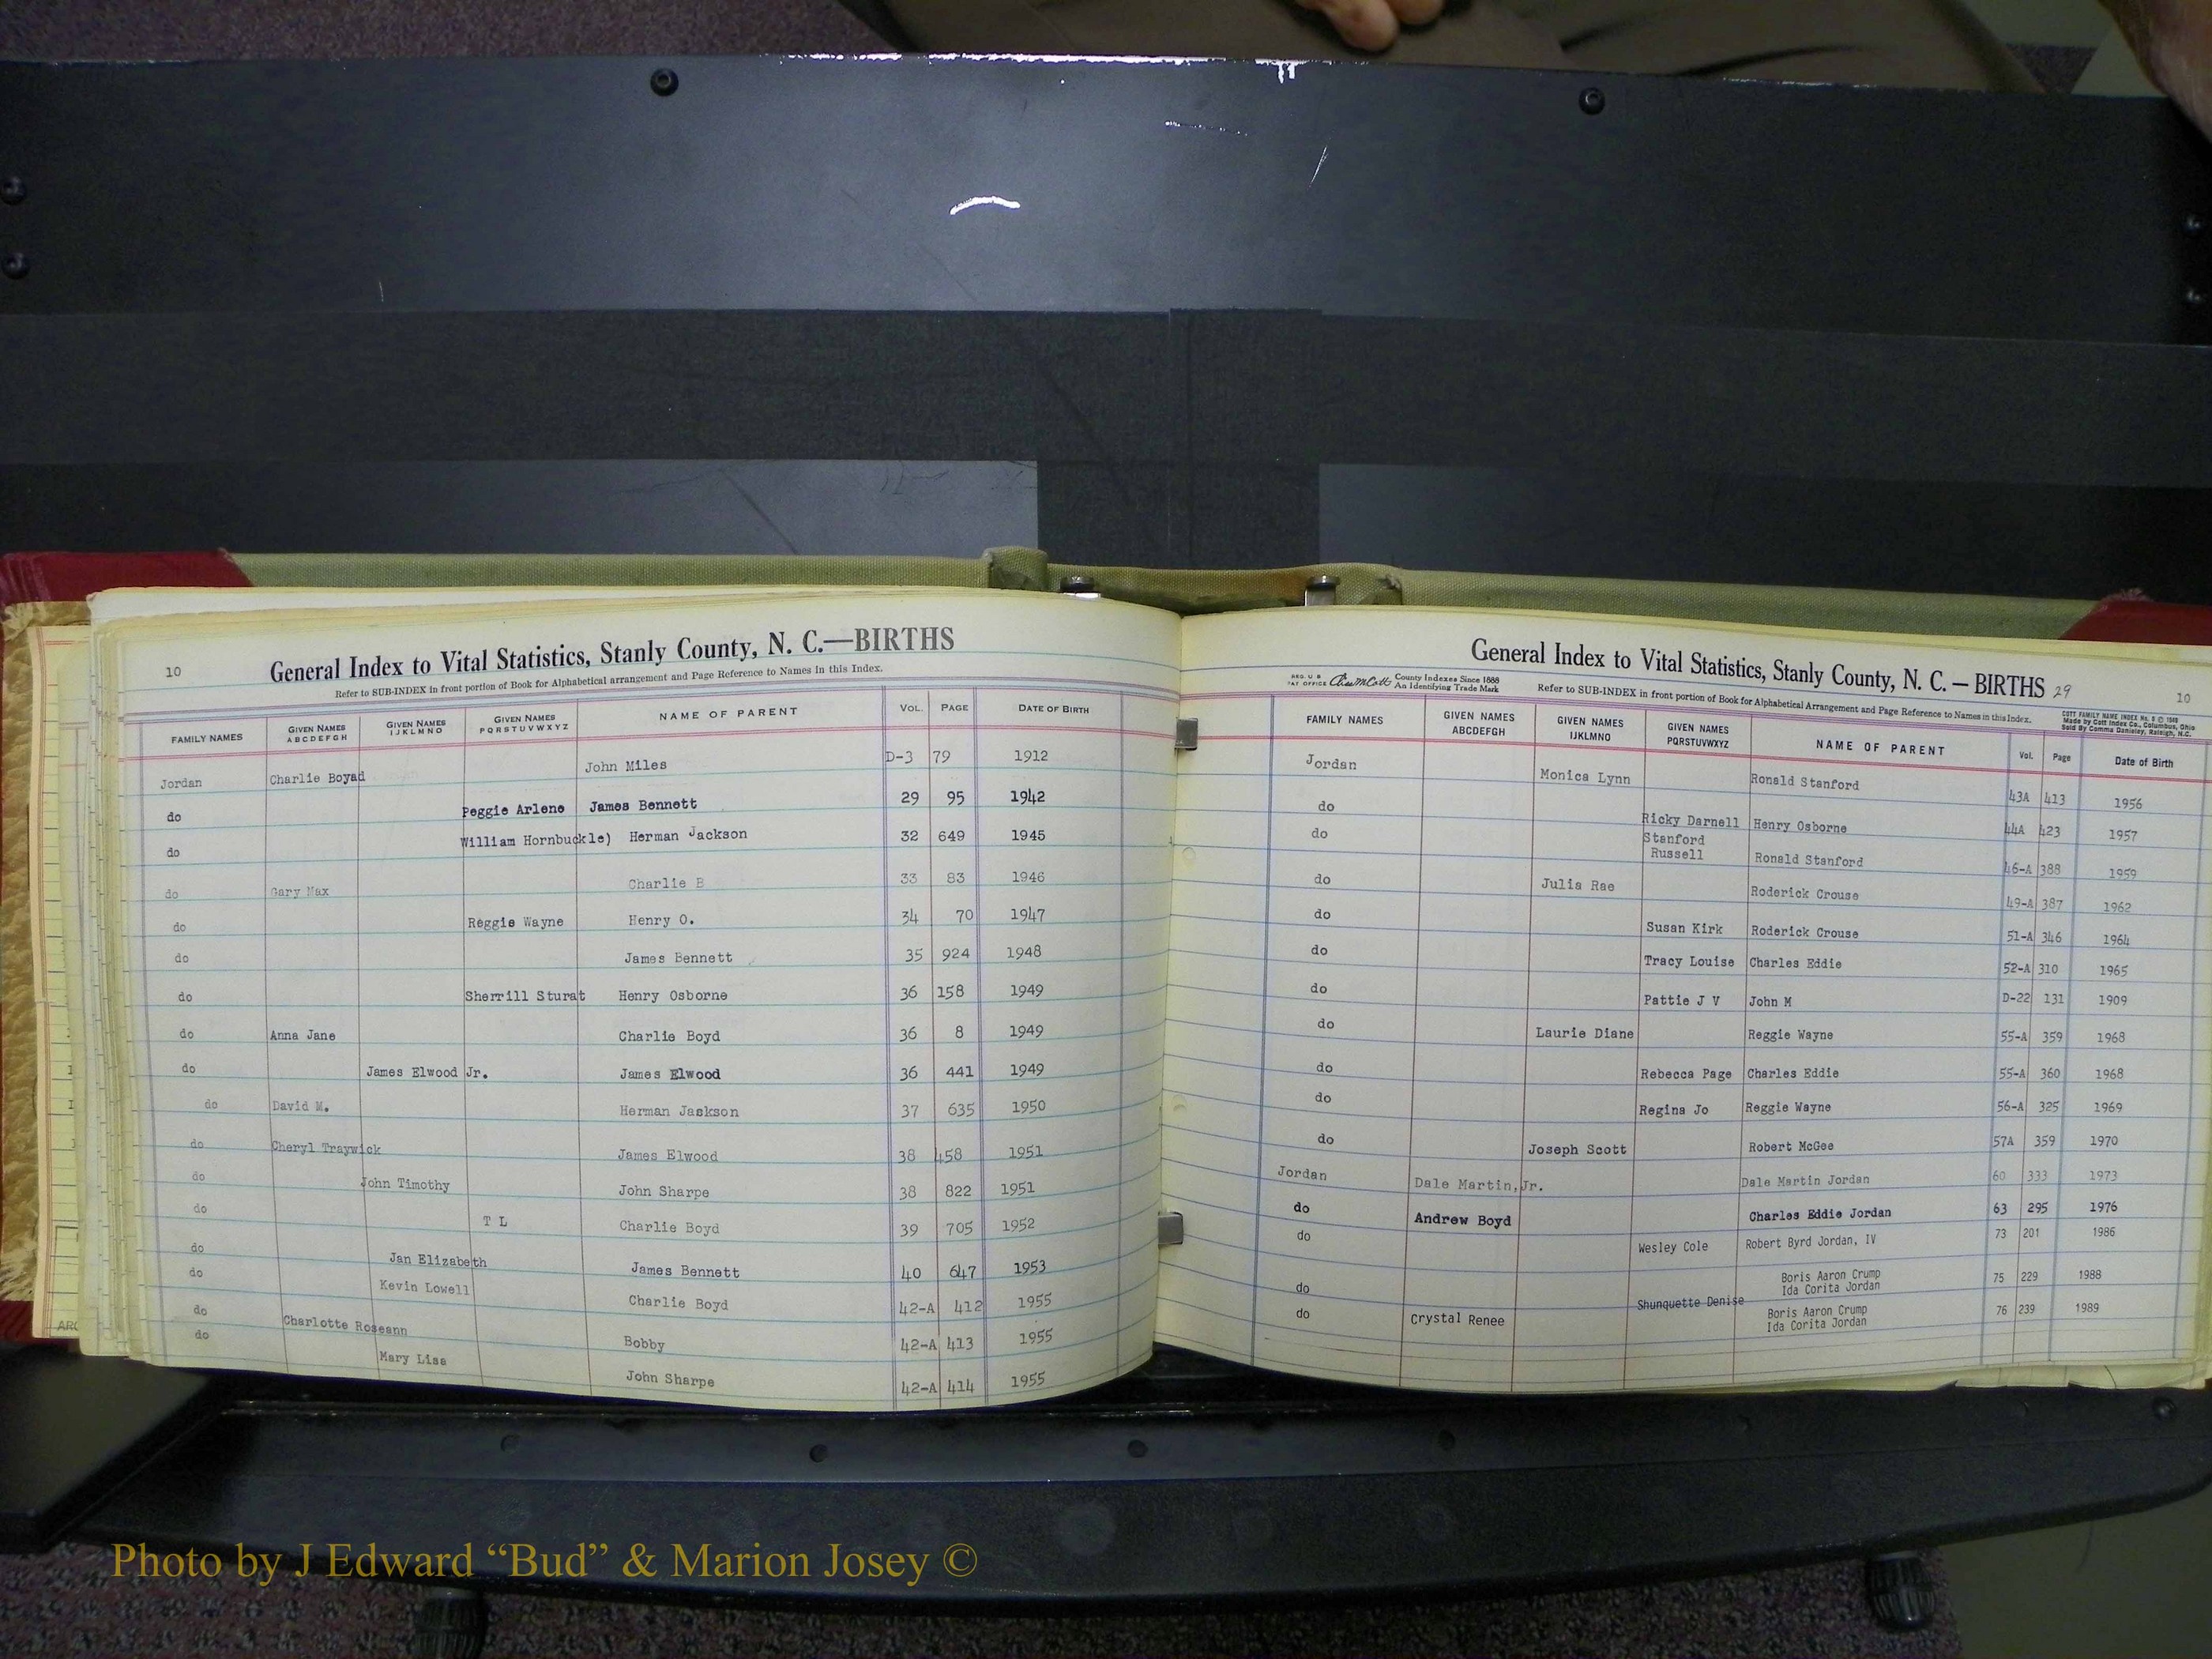 10
General Index to Vital Statistics, Stanly County, N. C.—BIRTHS
Refer to SUB-INDEX in front portion of Book for Alphabetical arrangement and Page Reference to Names in this Index.
FAMILY NAMES GIVEN NAMES ABCDEFGH GIVEN NAMES IJKLMNO GIVEN NAMES PQRSTUVWXYZ NAME OF PARENT VOL. PAGE DATE OF BIRTH
Jordan Charlie Boyad John Miles D-3 79 1912
do Peggie Arlene James Bennett 29 95 1942
do William Hornbuckle) Herman Jackson 32 649 1945
do Gary Max Charlie B 33 83 1946
do Reggie Wayne Henry O. 34 70 1947
do James Bennett 35 924 1948
do Sherrill Sturat Henry Osborne 36 158 1949
do Anna Jane Charlie Boyd 36 8 1949
do James Elwood Jr. James Elwood 36 441 1949
do David M. Herman Jaskson 37 635 1950
do Cheryl Traywick James Elwood 38 458 1951
do John Timothy John Sharpe 38 822 1951
do T L Charlie Boyd 39 705 1952
do Jan Elizabeth James Bennett 40 647 1953
do Kevin Lowell Charlie Boyd 42-A 412 1955
do Charlotte Roseann Bobby 42-A 413 1955
do Mary Lisa John Sharpe 42-A 414 1955
General Index to Vital Statistics, Stanly County, N. C. — BIRTHS 29
10
County Indexes Since 1888
An Identifying Trade Mark
Refer to SUB-INDEX in front portion of Book for Alphabetical Arrangement and Page Reference to Names in this Index.
COTT FAMILY NAME INDEX
Made by Cott Index Co., Columbus, Ohio
FAMILY NAMES GIVEN NAMES ABCDEFGH GIVEN NAMES IJKLMNO GIVEN NAMES PQRSTUVWXYZ NAME OF PARENT Vol. Page Date of Birth
Jordan Monica Lynn Ronald Stanford 43A 413 1956
do Ricky Darnell Henry Osborne 44A 423 1957
do Stanford Russell Ronald Stanford 46-A 388 1959
do Julia Rae Roderick Crouse 49-A 387 1962
do Susan Kirk Roderick Crouse 51-A 346 1964
do Tracy Louise Charles Eddie 52-A 310 1965
do Pattie J V John M D-22 131 1909
do Laurie Diane Reggie Wayne 55-A 359 1968
do Rebecca Page Charles Eddie 55-A 360 1968
do Regina Jo Reggie Wayne 56-A 325 1969
do Joseph Scott Robert McGee 57A 359 1970
Jordan Dale Martin, Jr. Dale Martin Jordan 60 333 1973
do Andrew Boyd Charles Eddie Jordan 63 295 1976
do Wesley Cole Robert Byrd Jordan, IV 73 201 1986
do Shunquette Denise Boris Aaron Crump Ida Corita Jordan 75 229 1988
do Crystal Renee Boris Aaron Crump Ida Corita Jordan 76 239 1989
Photo by J Edward “Bud” & Marion Josey ©